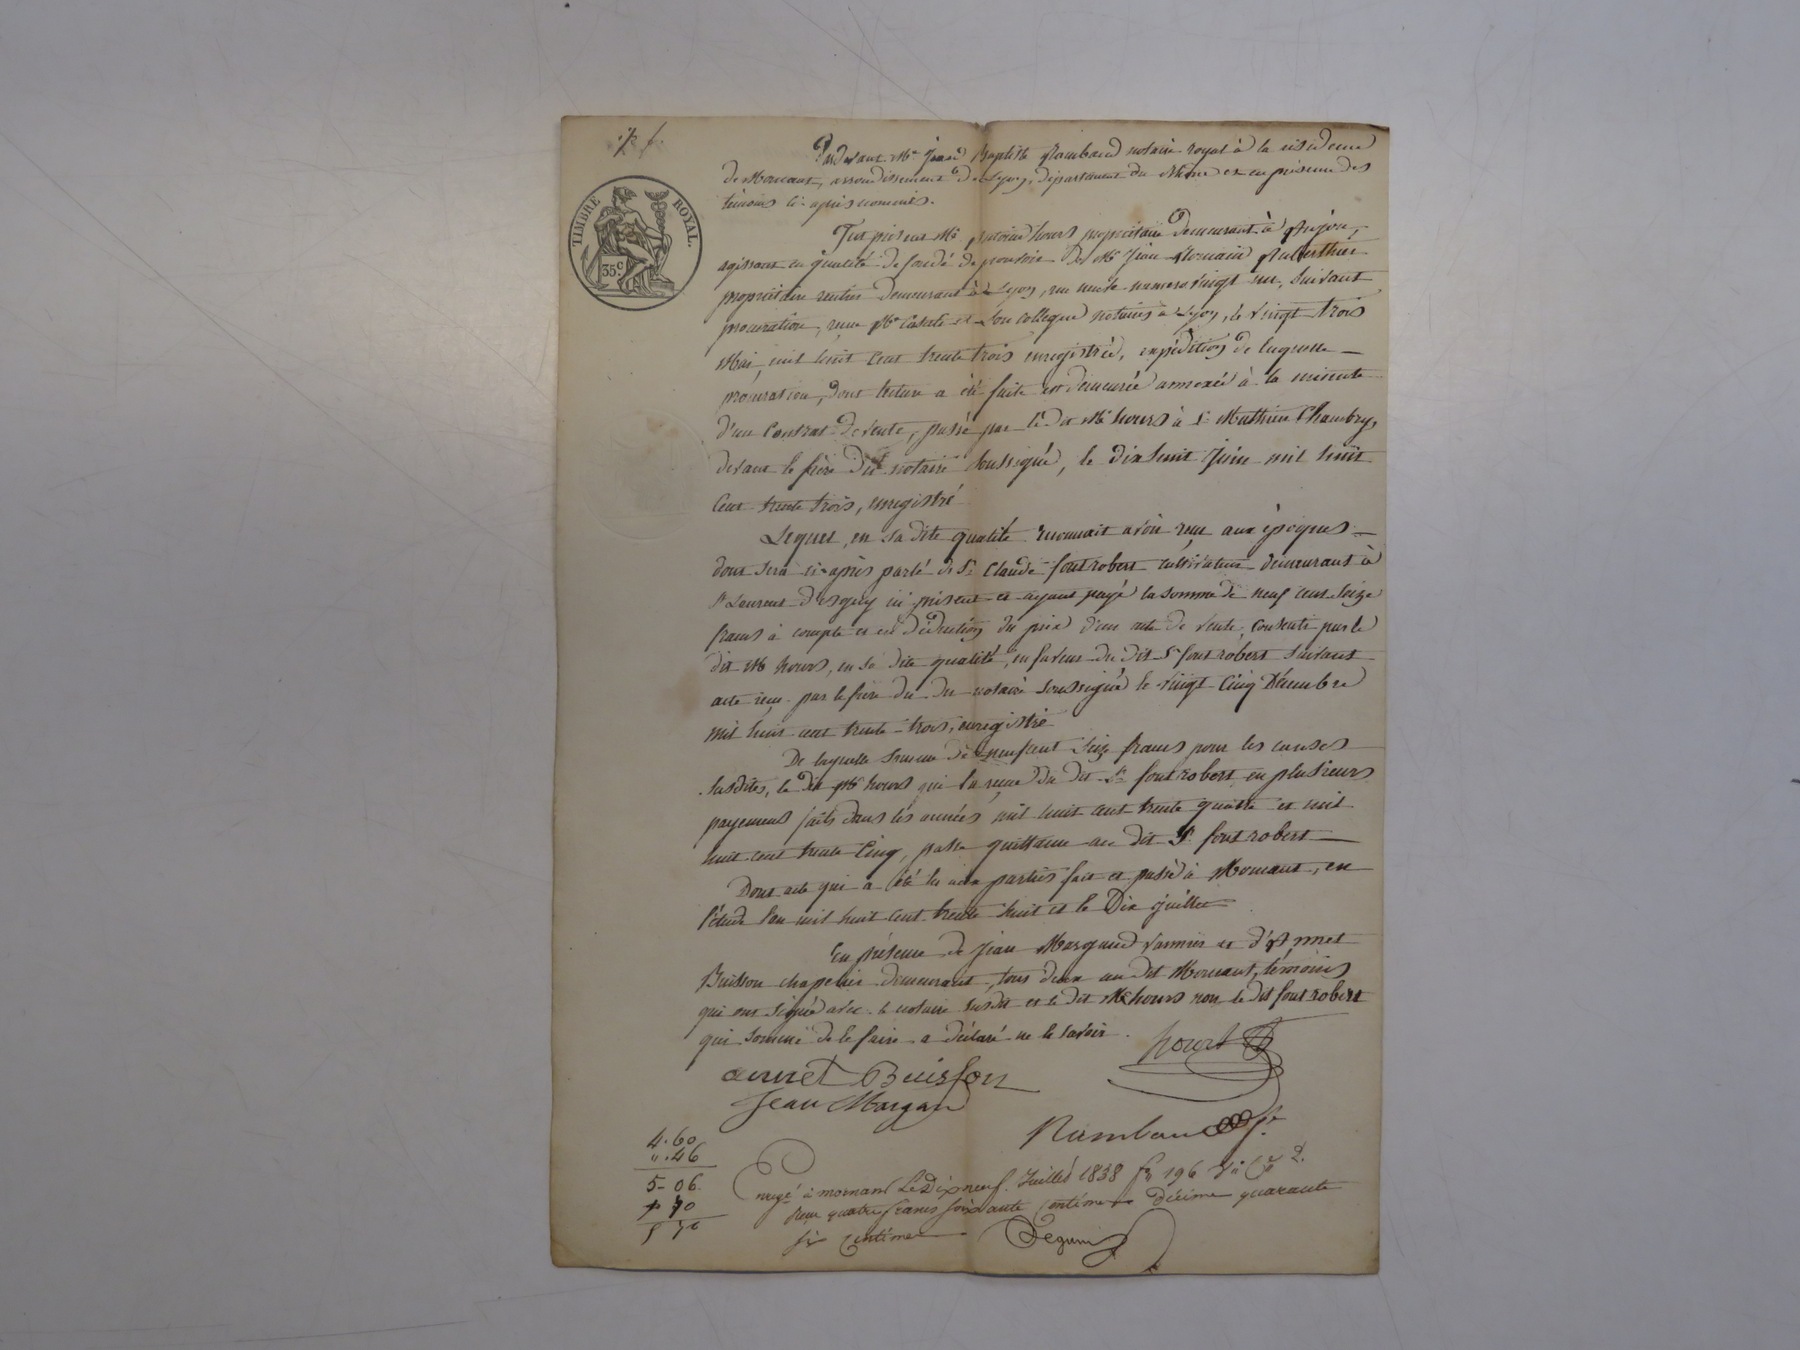 TIMBRE ROYAL.
35 c.
Pardevant Me Jean Baptiste Rambaud notaire royal à la résidence
de Mornant, arrondissement de Lyon, département du Rhône et en présence des
témoins ci-après nommés.
Fut présent Mr Antoine hours propriétaire demeurant à
agissant en qualité de fondé de pouvoir de Mr Jean
propriétaire rentier demeurant à Lyon, rue numero vingt un, suivant
procuration, reçue Me et son collegue notaires à Lyon, le vingt trois
Mai, mil huit cent trente trois enregistrée, expédition de laquelle
procuration, dont lecture a été faite est demeurée annexée à la minute
d'un Contrat de vente, passé par le dit Mr hours à Sr Mathieu Chambry,
devant le frère du notaire soussigné, le dix huit Juin mil huit
cent trente trois, enregistré
Lequel, en sa dite qualité reconnait avoir reçu aux époques
dont sera ci-après parlé de Sr Claude font robert cultivateur demeurant à
St Laurent d'agny ici présent et ayant payé la somme de neuf cent seize
francs à compte et en déduction du prix d'un acte de vente, consenti par le
dit Mr hours, en sa dite qualité, en faveur du dit Sr font robert suivant
acte reçu par le frère du du notaire soussigné le vingt cinq Décembre
mil huit cent trente trois, enregistré
De laquelle somme de neuf cent seize francs pour les causes
susdites, le dit Mr hours qui l'a reçue du dit Sr font robert en plusieurs
payemens faits dans les années mil huit cent trente quatre et mil
huit cent trente cinq, passe quittance au dit Sr font robert
Dont acte qui a été lu aux parties fait et passé à Mornant, en
l'étude l'an mil huit cent trente huit et le Dix juillet
En présence de Jean Margand vannier et d'Annet
Buisson chapelier demeurant, tous deux au dit Mornant, témoins
qui ont signé avec le notaire susdit et le dit Mr hours non le dit font robert
qui sommé de le faire a déclaré ne le savoir.
hours
annet Buisson
Jean Margand
Rambaud
4.60
".46
5-06
70
Enregé à mornant Le Dix neuf Juillet 1838 fo 196 Vo Ce 2.
Reçu quatre francs soixante centimes décime quarante
six centimes
Seguin